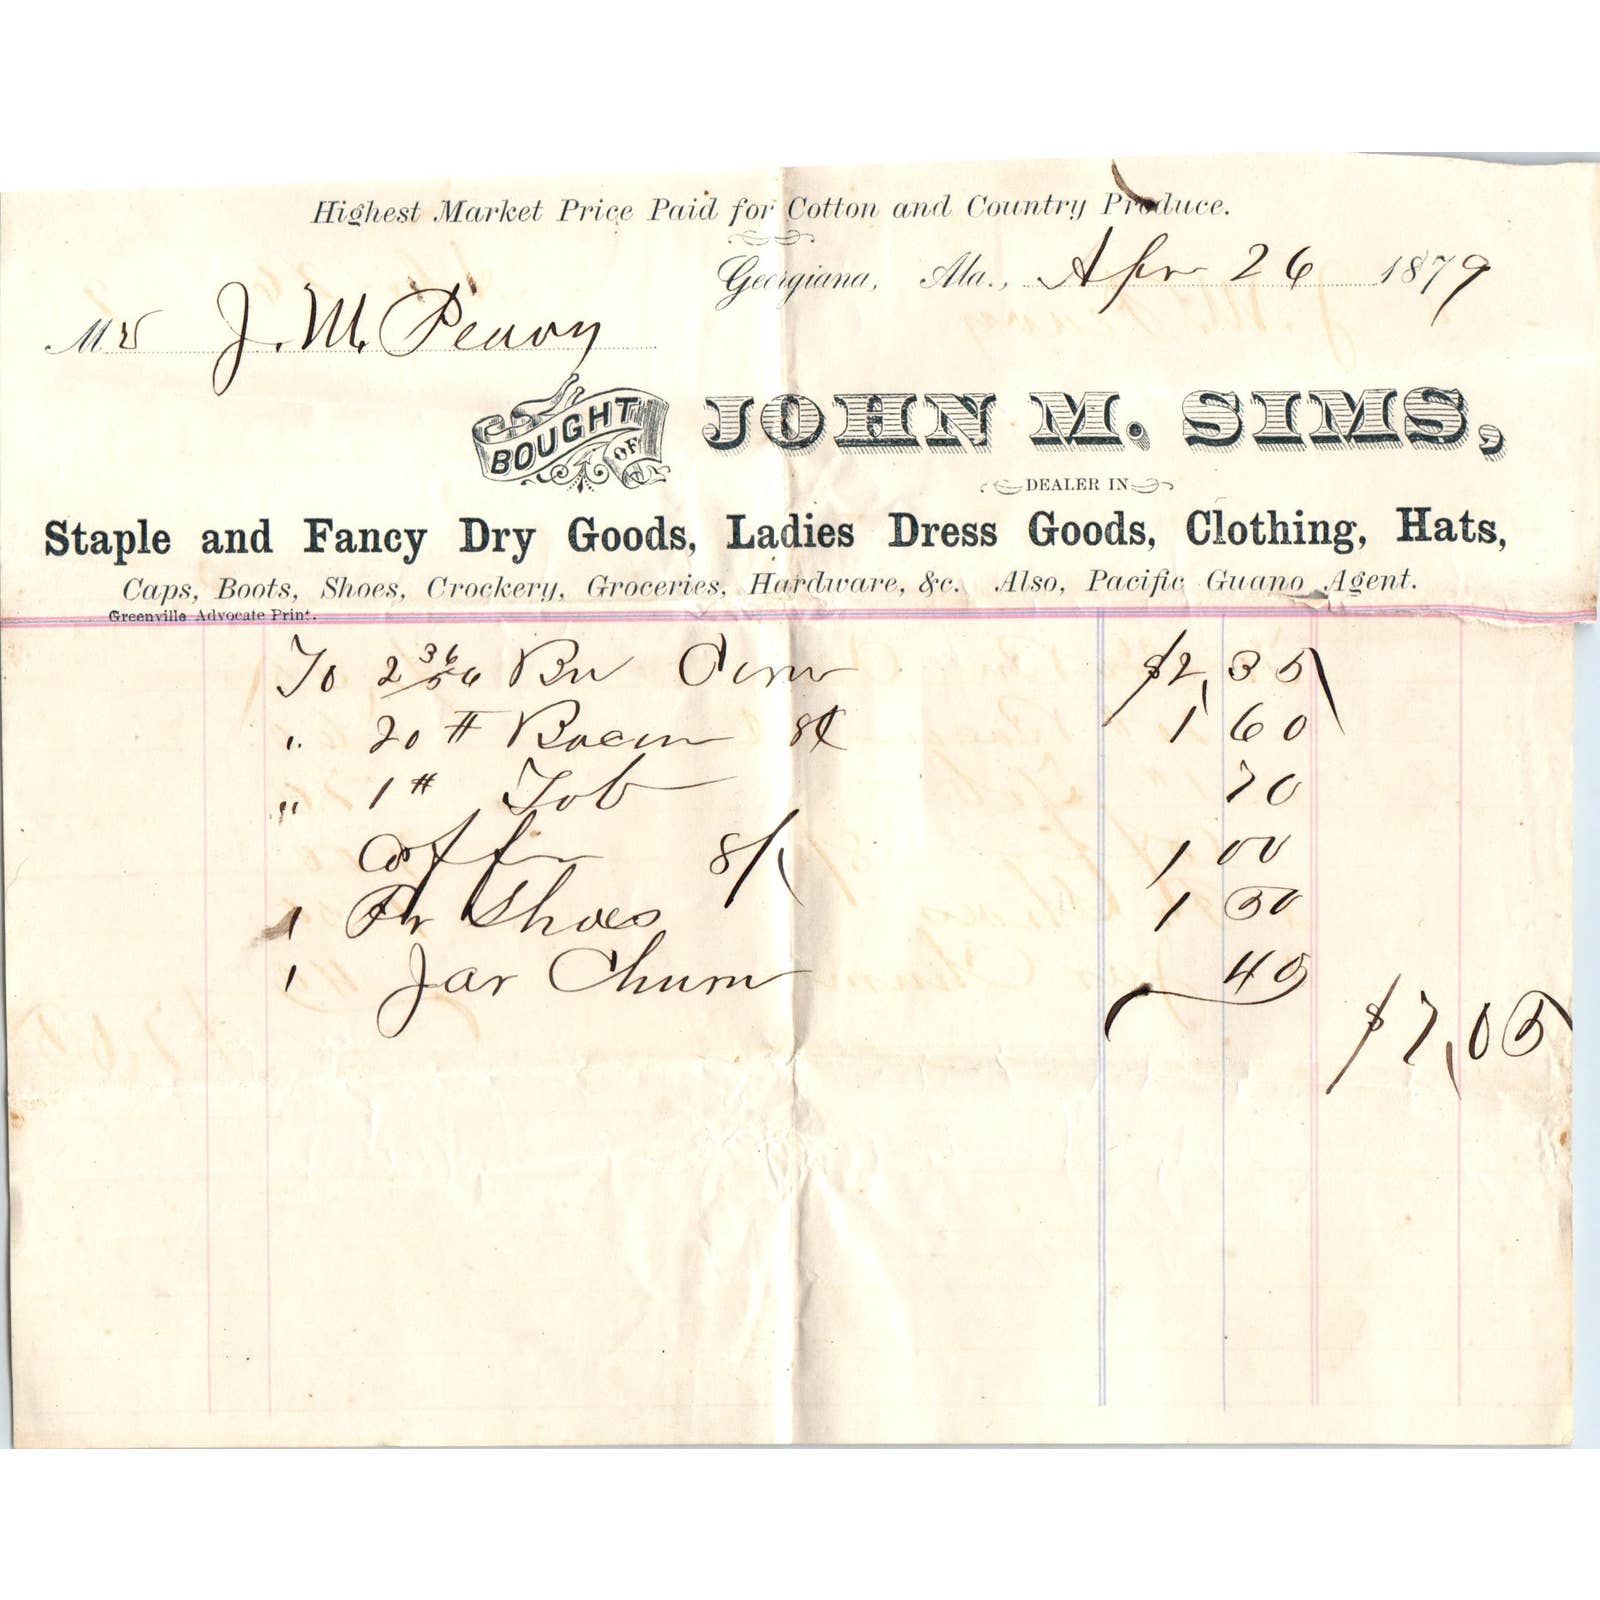 Highest Market Price Paid for Cotton and Country Produce.
Georgiana, Ala., Apr 26 1879
Mr J. M. Peavy
BOUGHT OF JOHN M. SIMS,
DEALER IN
Staple and Fancy Dry Goods, Ladies Dress Goods, Clothing, Hats,
Caps, Boots, Shoes, Crockery, Groceries, Hardware, &c. Also, Pacific Guano Agent.
Greenville Advocate Print.
To 2 36/56 Bu Corn $2,35
" 20 # Bacon 8¢ 1 60
" 1 # Tob 70
Coffee 1 00
1 Pr Shoes 1 50
1 Jar Churn 40
$7,05